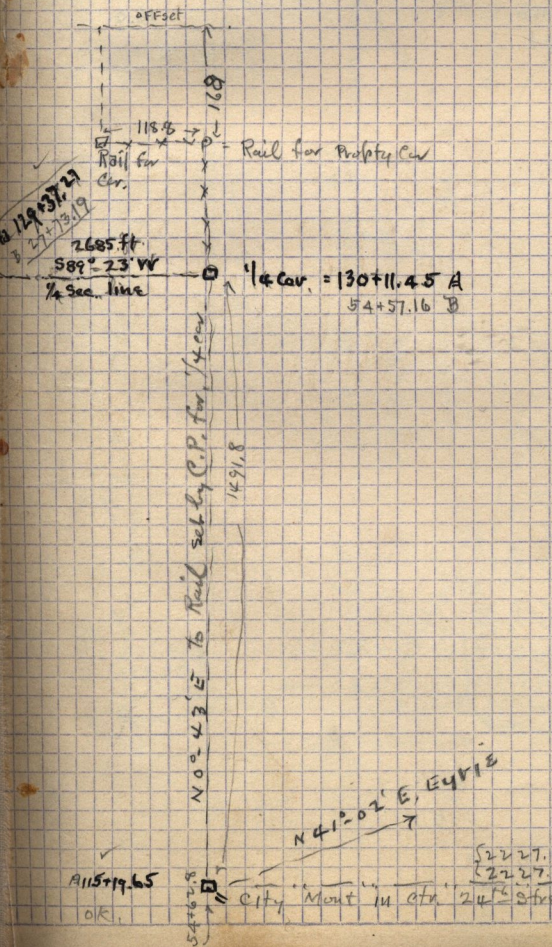 OFFset
168
118.8
Rail for
Cor.
Rail for Propty Cor
129+37.27
B 27+73.19
2685 ft.
S89°-23'W
1/4 Sec. line
1/4 Cor. = 130+11.45 A
54+57.16 B
N 0°-43' E To Rail set by C.P. for 1/4 cor
1491.8
N 41°-02' E. Eyrie
A 115+19.65
OK.
54+62.8
City "Mont" in ctr. 24th Str
2227.
2227.